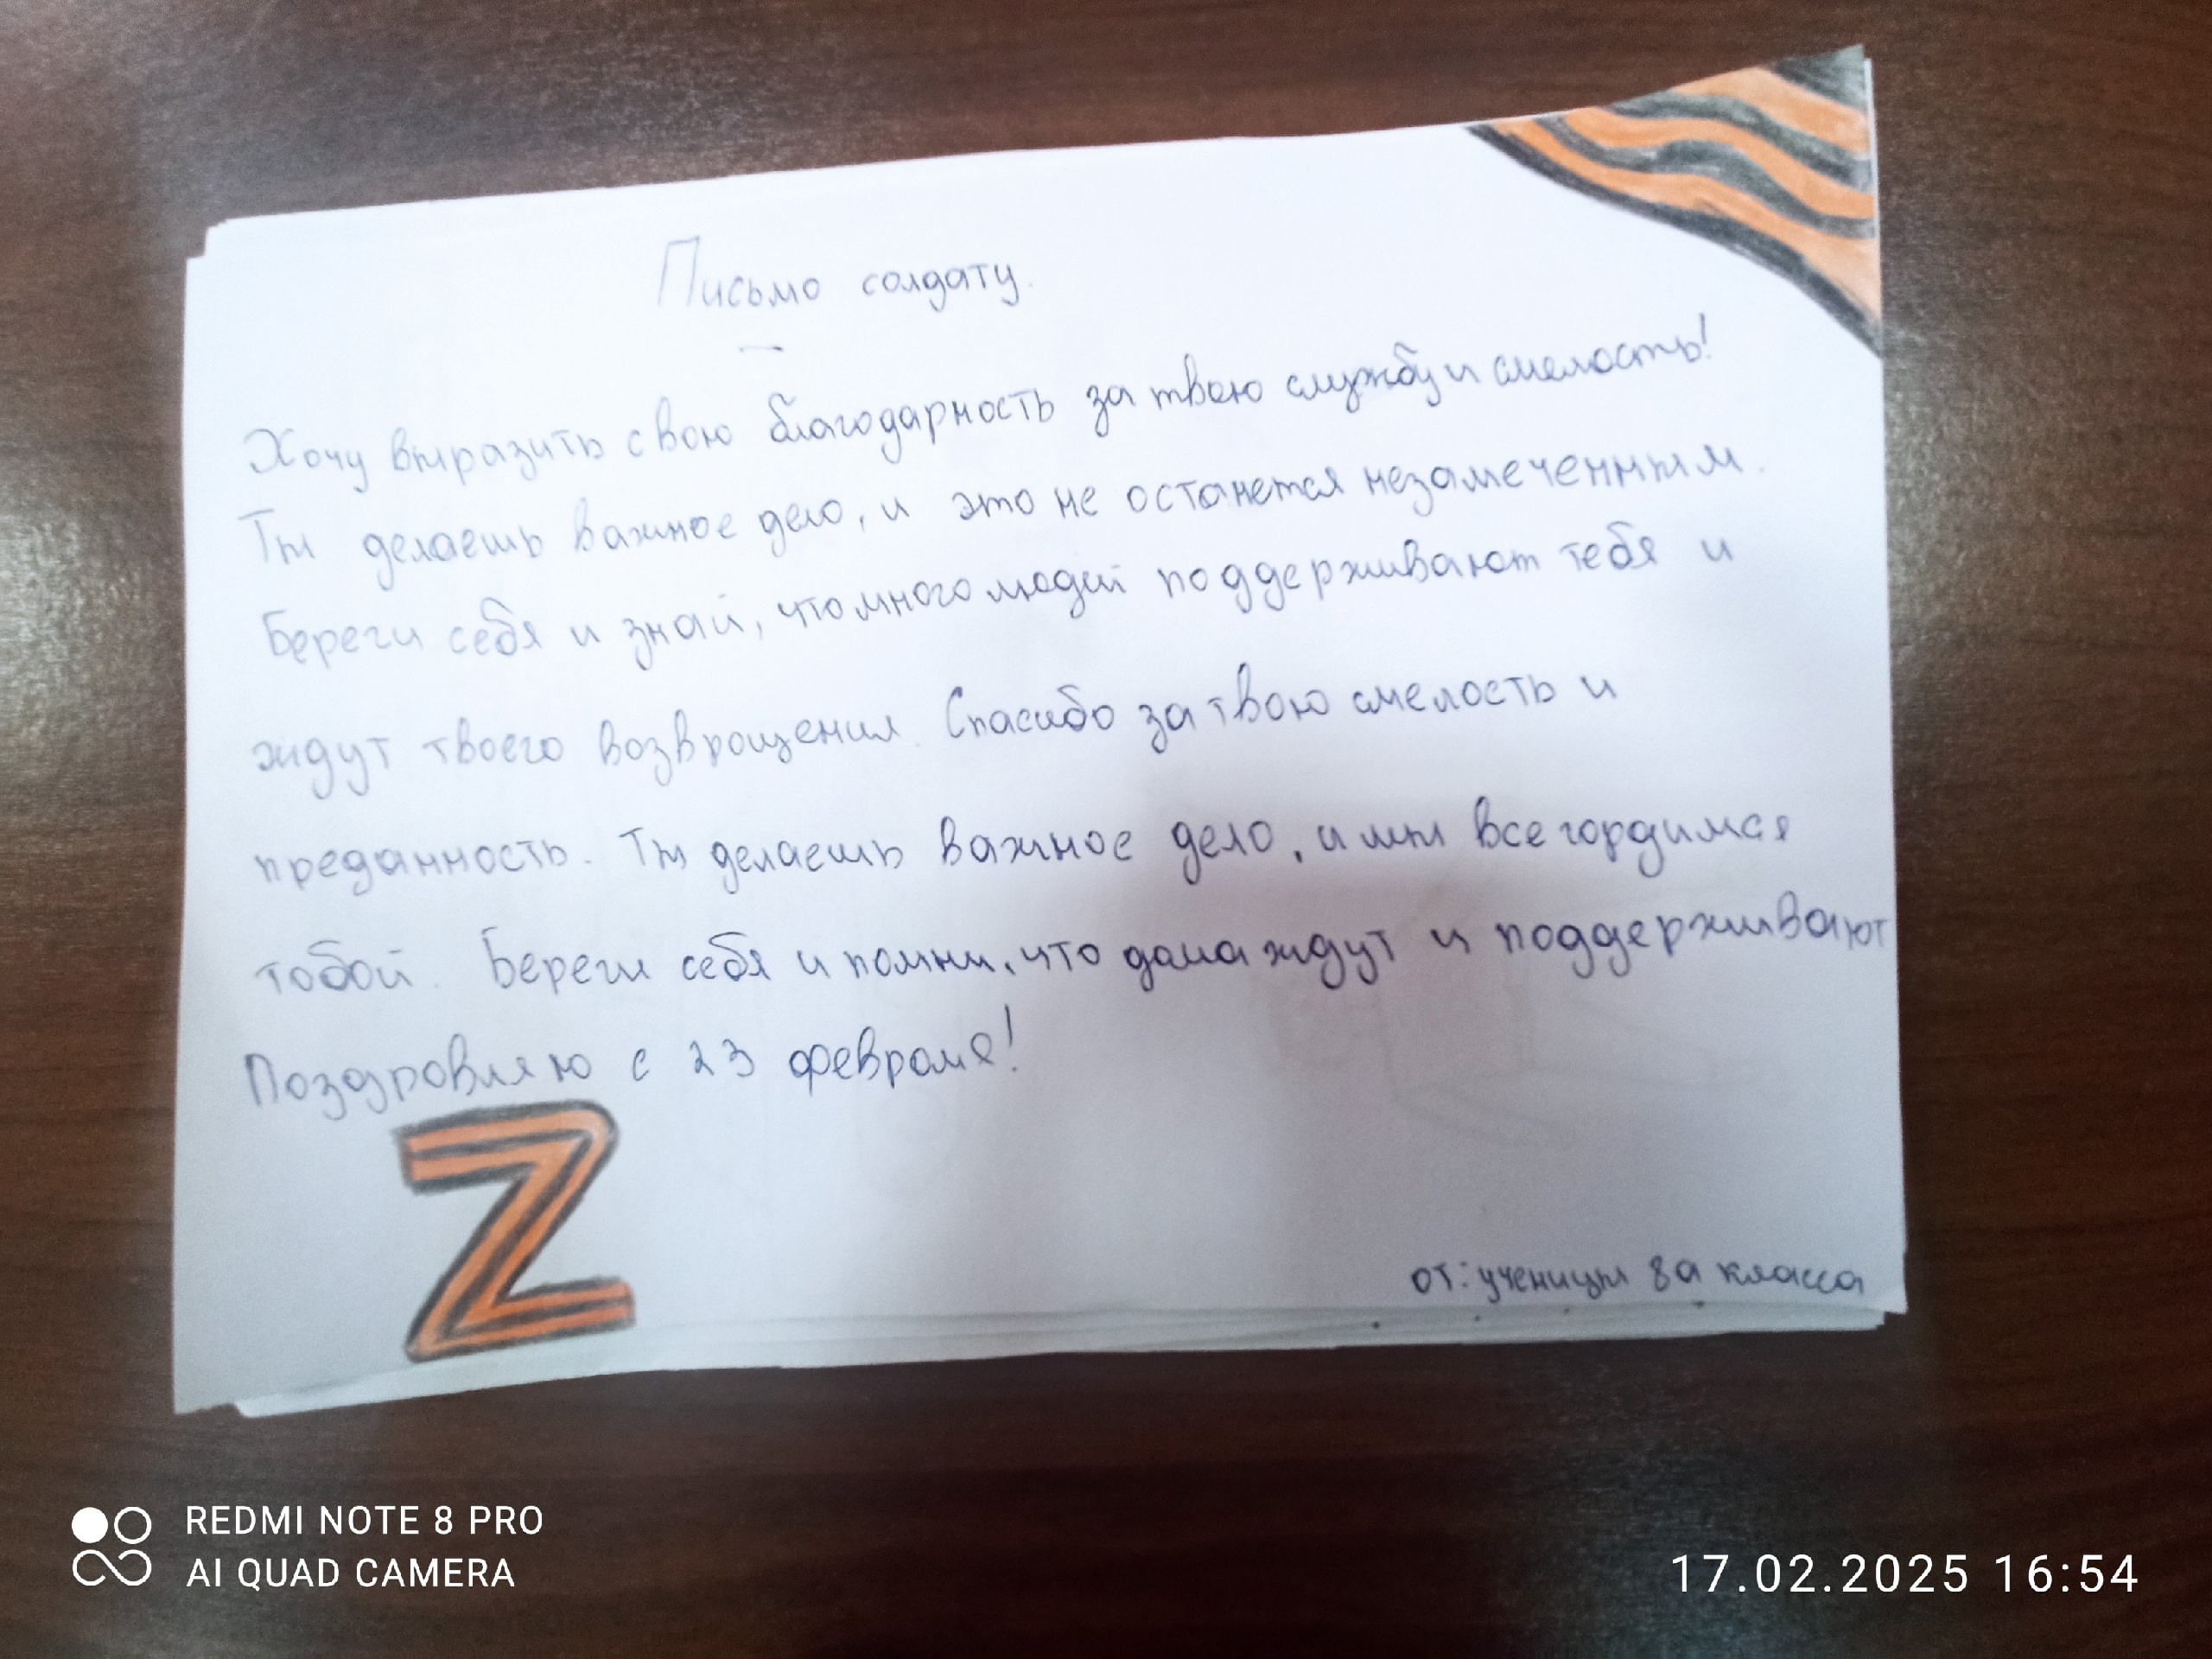 Письмо солдату.
Хочу выразить свою благодарность за твою службу и смелость!
Ты делаешь важное дело, и это не останется незамеченным.
Береги себя и знай, что много людей поддерживают тебя и
ждут твоего возвращения. Спасибо за твою смелость и
преданность. Ты делаешь важное дело, и мы все гордимся
тобой. Береги себя и помни, что дома ждут и поддерживают
Поздровляю с 23 февроля!
Z
от: ученицы 8а класса
REDMI NOTE 8 PRO
AI QUAD CAMERA
17.02.2025 16:54